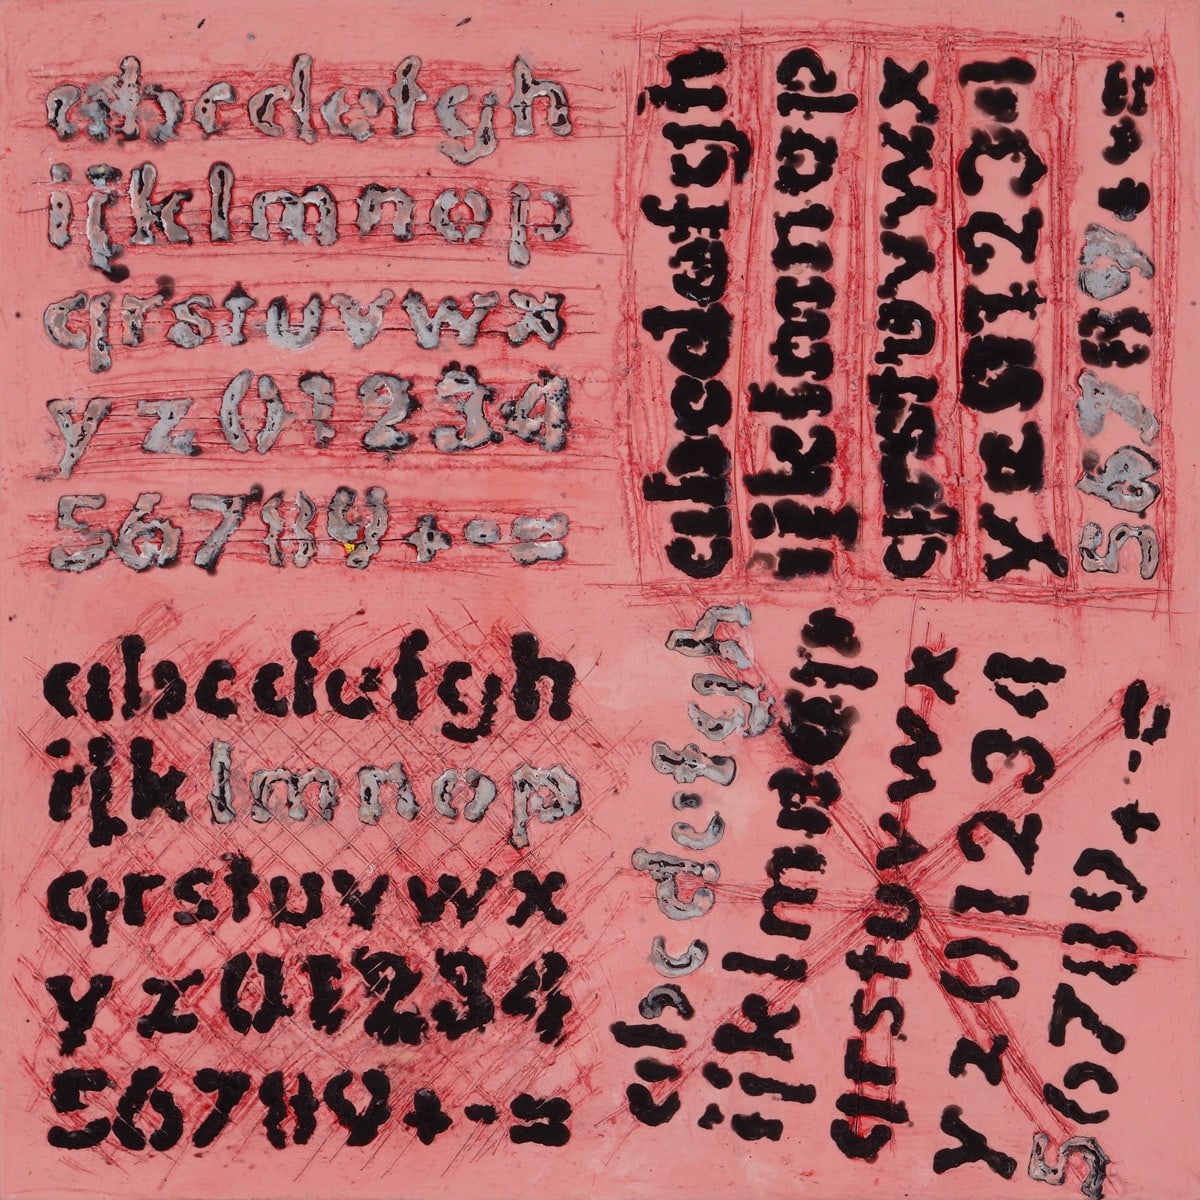 abcdefgh
ijklmnop
qrstuvwx
yz01234
56789+-=
abcdefgh
ijklmnop
qrstuvwx
yz01234
56789+-=
abcdefgh
ijklmnop
qrstuvwx
yz01234
56789+-=
abcdefgh
ijklmnop
qrstuvwx
yz01234
56789+-=